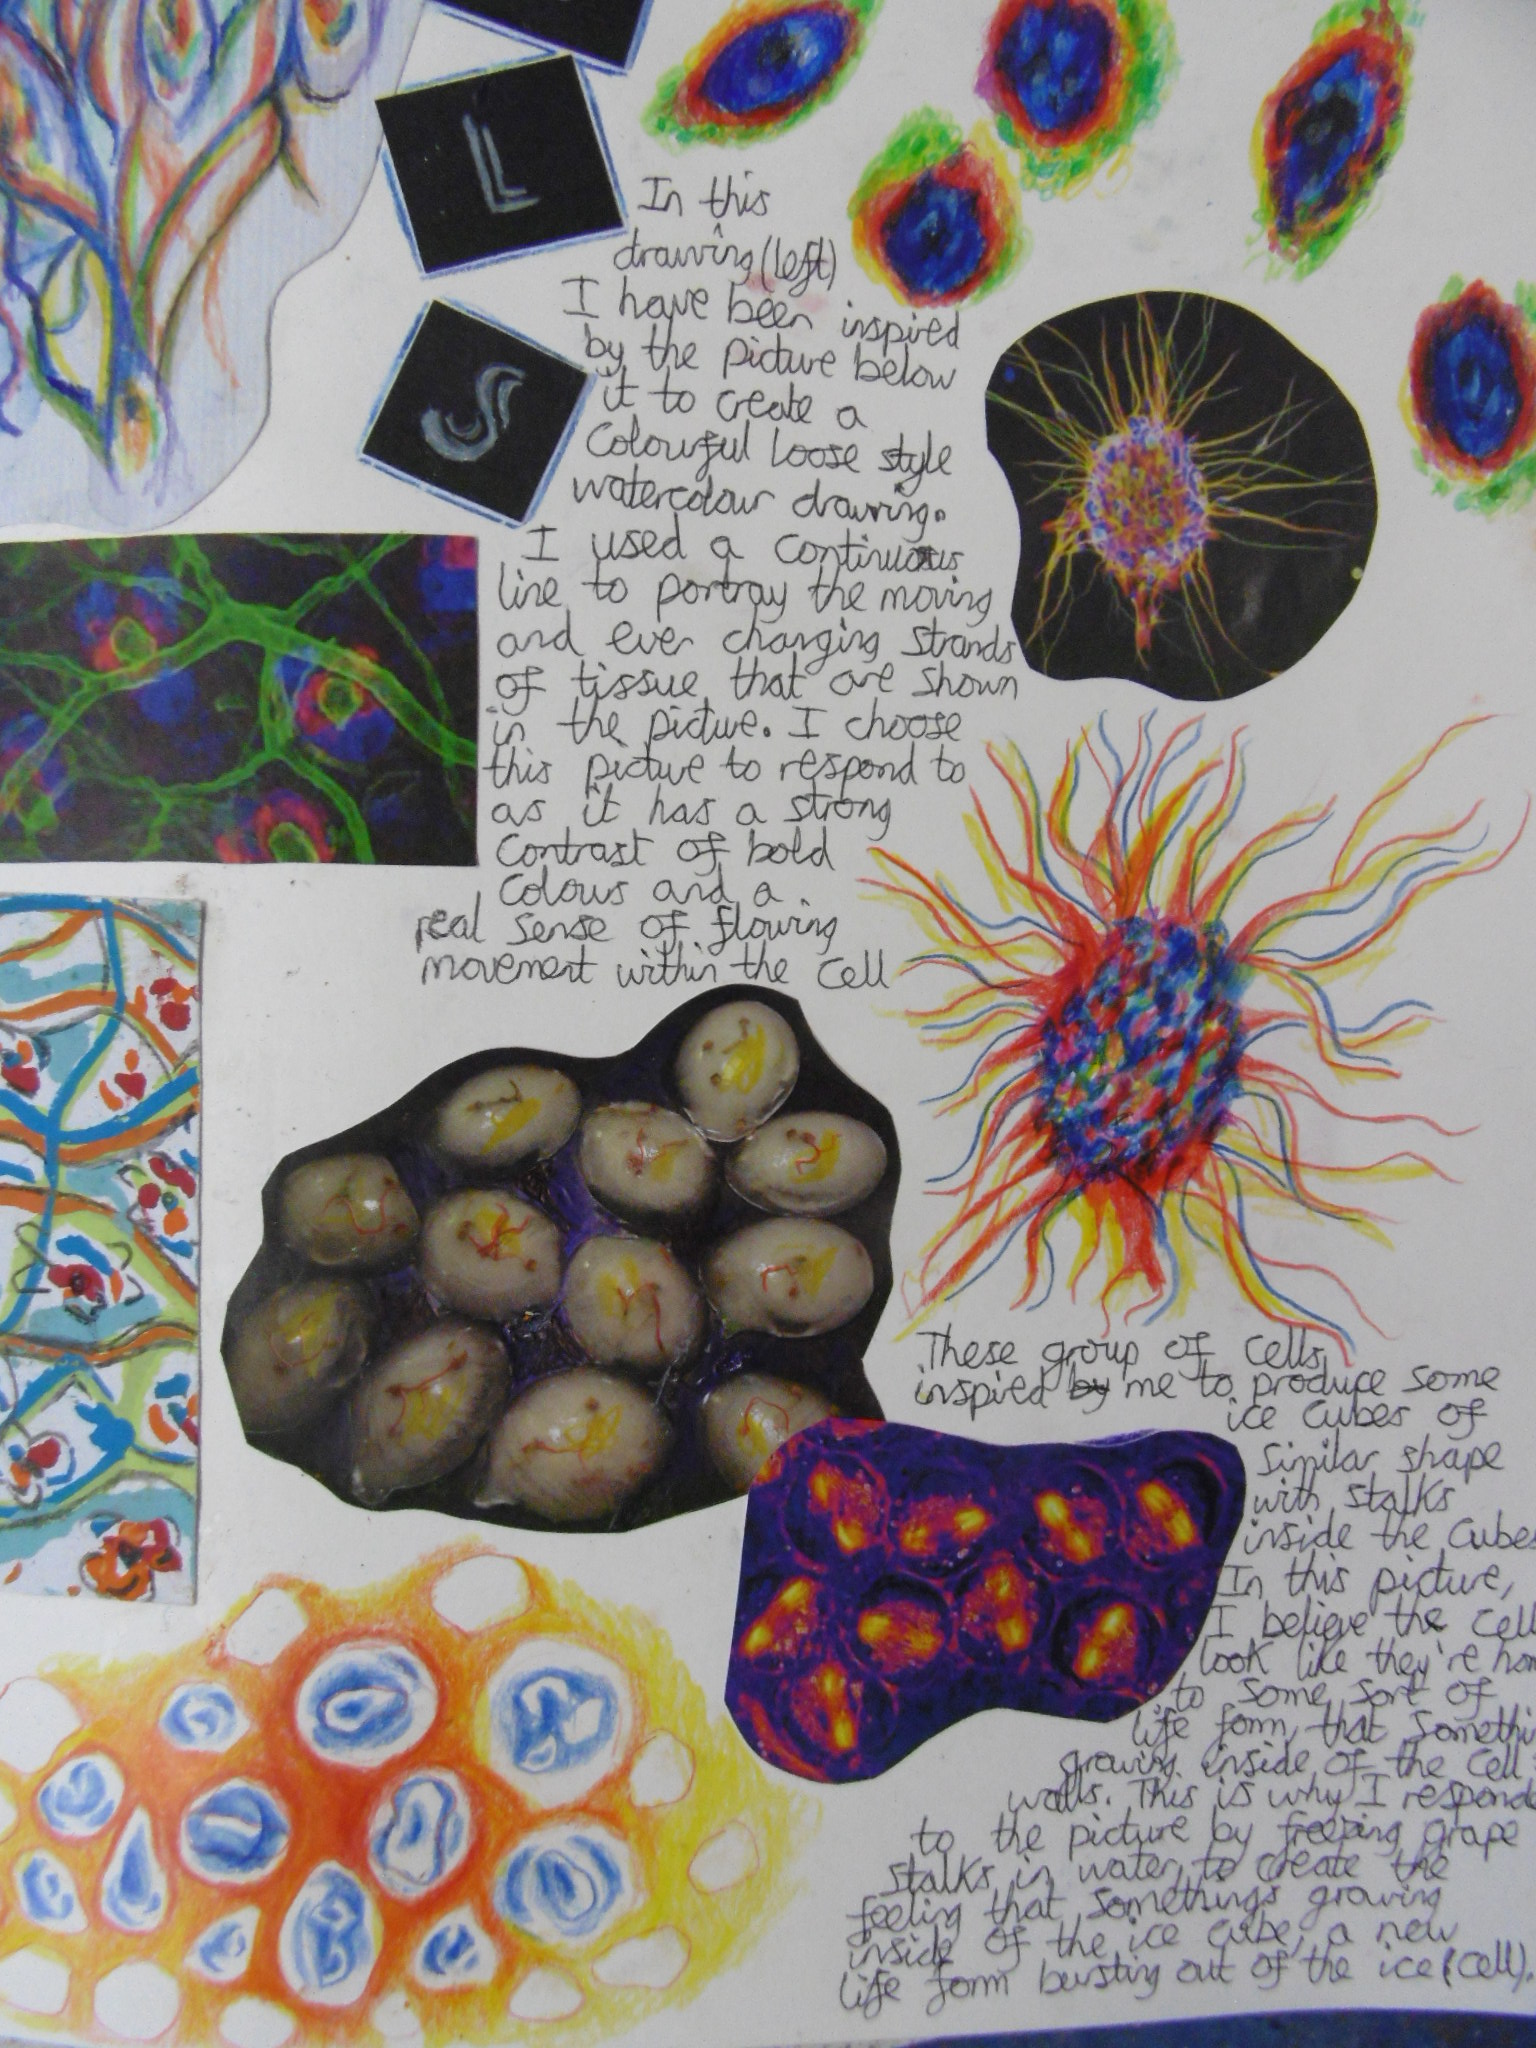 L
S
In this
drawing (left)
I have been inspired
by the picture below
it to create a
colourful loose style
watercolour drawing.
I used a continuous
line to portray the moving
and ever changing strands
of tissue that are shown
in the picture. I choose
this picture to respond to
as it has a strong
contrast of bold
colours and a
real sense of flowing
movement within the cell
These group of cells
inspired by me to produce some
ice cubes of
similar shape
with stalks
inside the cubes
In this picture,
I believe the cell
look like they're hom
to some sort of
life form, that somethi
growing inside of the cell
walls. This is why I responde
to the picture by freezing grape
stalks in water, to create the
feeling that somethings growing
inside of the ice cube, a new
life form bursting out of the ice (cell).